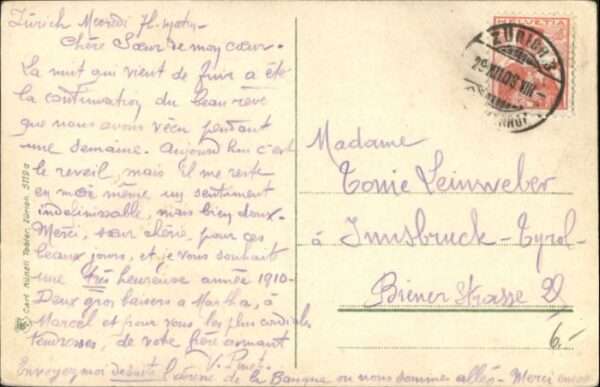 Zürich Mercredi 7h. matin
Chère Sœur de mon cœur.
La nuit qui vient de finir a été
la continuation du beau rêve
que nous avons vécu pendant
une semaine. Aujourd'hui c'est
le reveil, mais il me reste
en moi même un sentiment
indefinissable, mais bien doux.
Merci, sœur chérie, pour ces
beaux jours, et je vous souhait
une très heureuse année 1910.
Deux gros baisers a Martha, à
Marcel et pour vous les plus cordiales
tendresses, de votre frère aimant
Envoyez moi de suite l'adresse de la Banque ou nous sommes allés - Merci encore
HELVETIA
ZÜRICH
Madame
Tonie Leinweber
à Innsbruck - Tyrol -
Biener Strasse 29
6.-
Carl Künzli Tobler, Zürich. 5119a